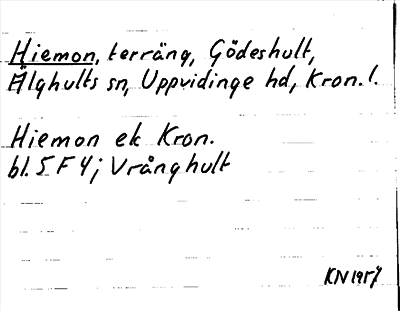 Hiemon, terräng, Gödeshult,
Älghults sn, Uppvidinge hd, Kron. l.
Hiemon ek Kron.
bl. 5 F 4j Vrånghult
KN 1957